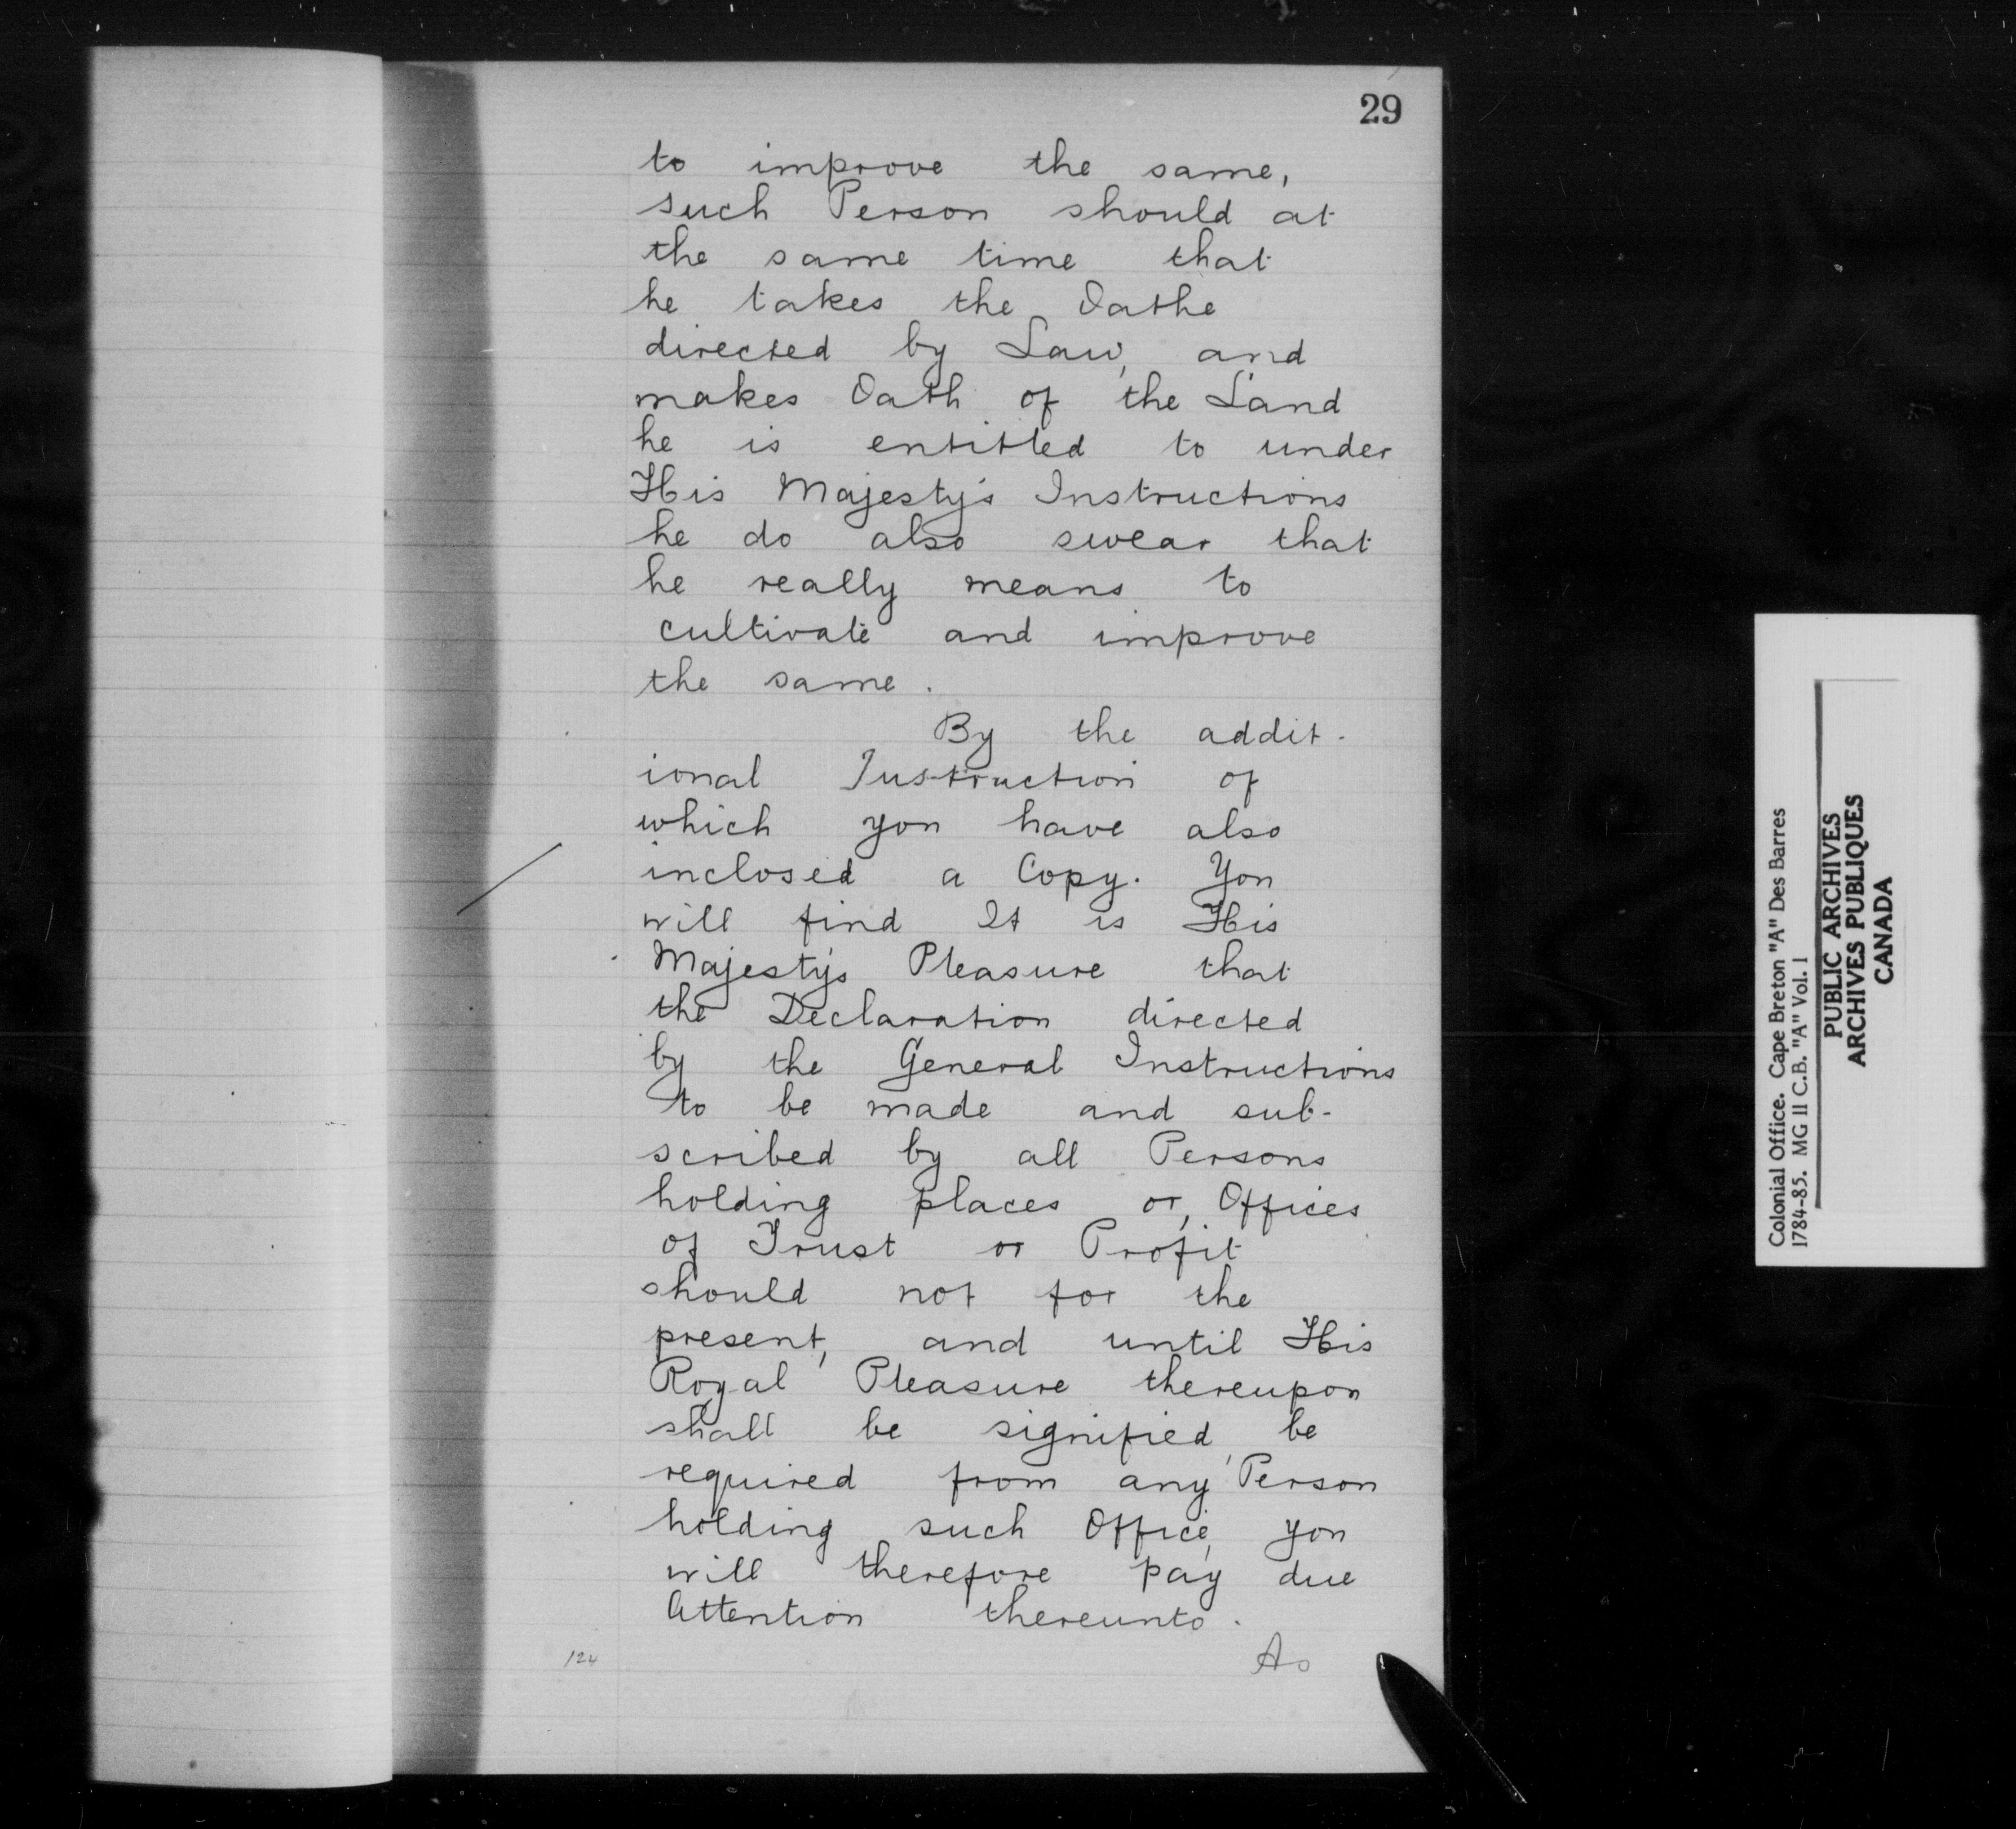 29
to improve the same,
such Person should at
the same time that
he takes the Oathe
directed by Law, and
makes Oath of the Land
he is entitled to under
His Majesty's Instructions
he do also swear that
he really means to
cultivate and improve
the same.
By the addit-
ional Instruction of
which you have also
inclosed a Copy. You
will find It is His
Majesty's Pleasure that
the Declaration directed
by the General Instructions
to be made and sub-
scribed by all Persons
holding places or, Offices
of Trust or Profit
should not for the
present, and until His
Royal Pleasure thereupon
shall be signified, be
required from any Person
holding such Office, you
will therefore pay due
Attention thereunto.
124
As
Colonial Office. Cape Breton "A" Des Barres
1784-85. MG 11 C.B. "A" Vol. 1
PUBLIC ARCHIVES
ARCHIVES PUBLIQUES
CANADA